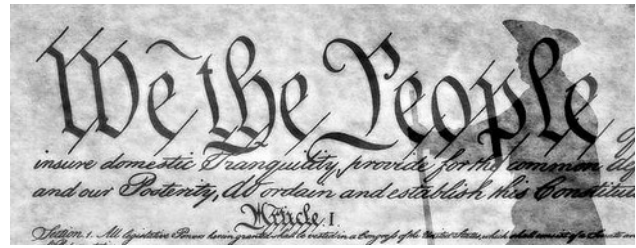 We the People
insure domestic Tranquility, provide for the common
and our Posterity, do ordain and establish this
Article. I.
Section 1. All legislative Powers herein granted shall be vested in a Congress of the United States, which shall consist of a Senate and